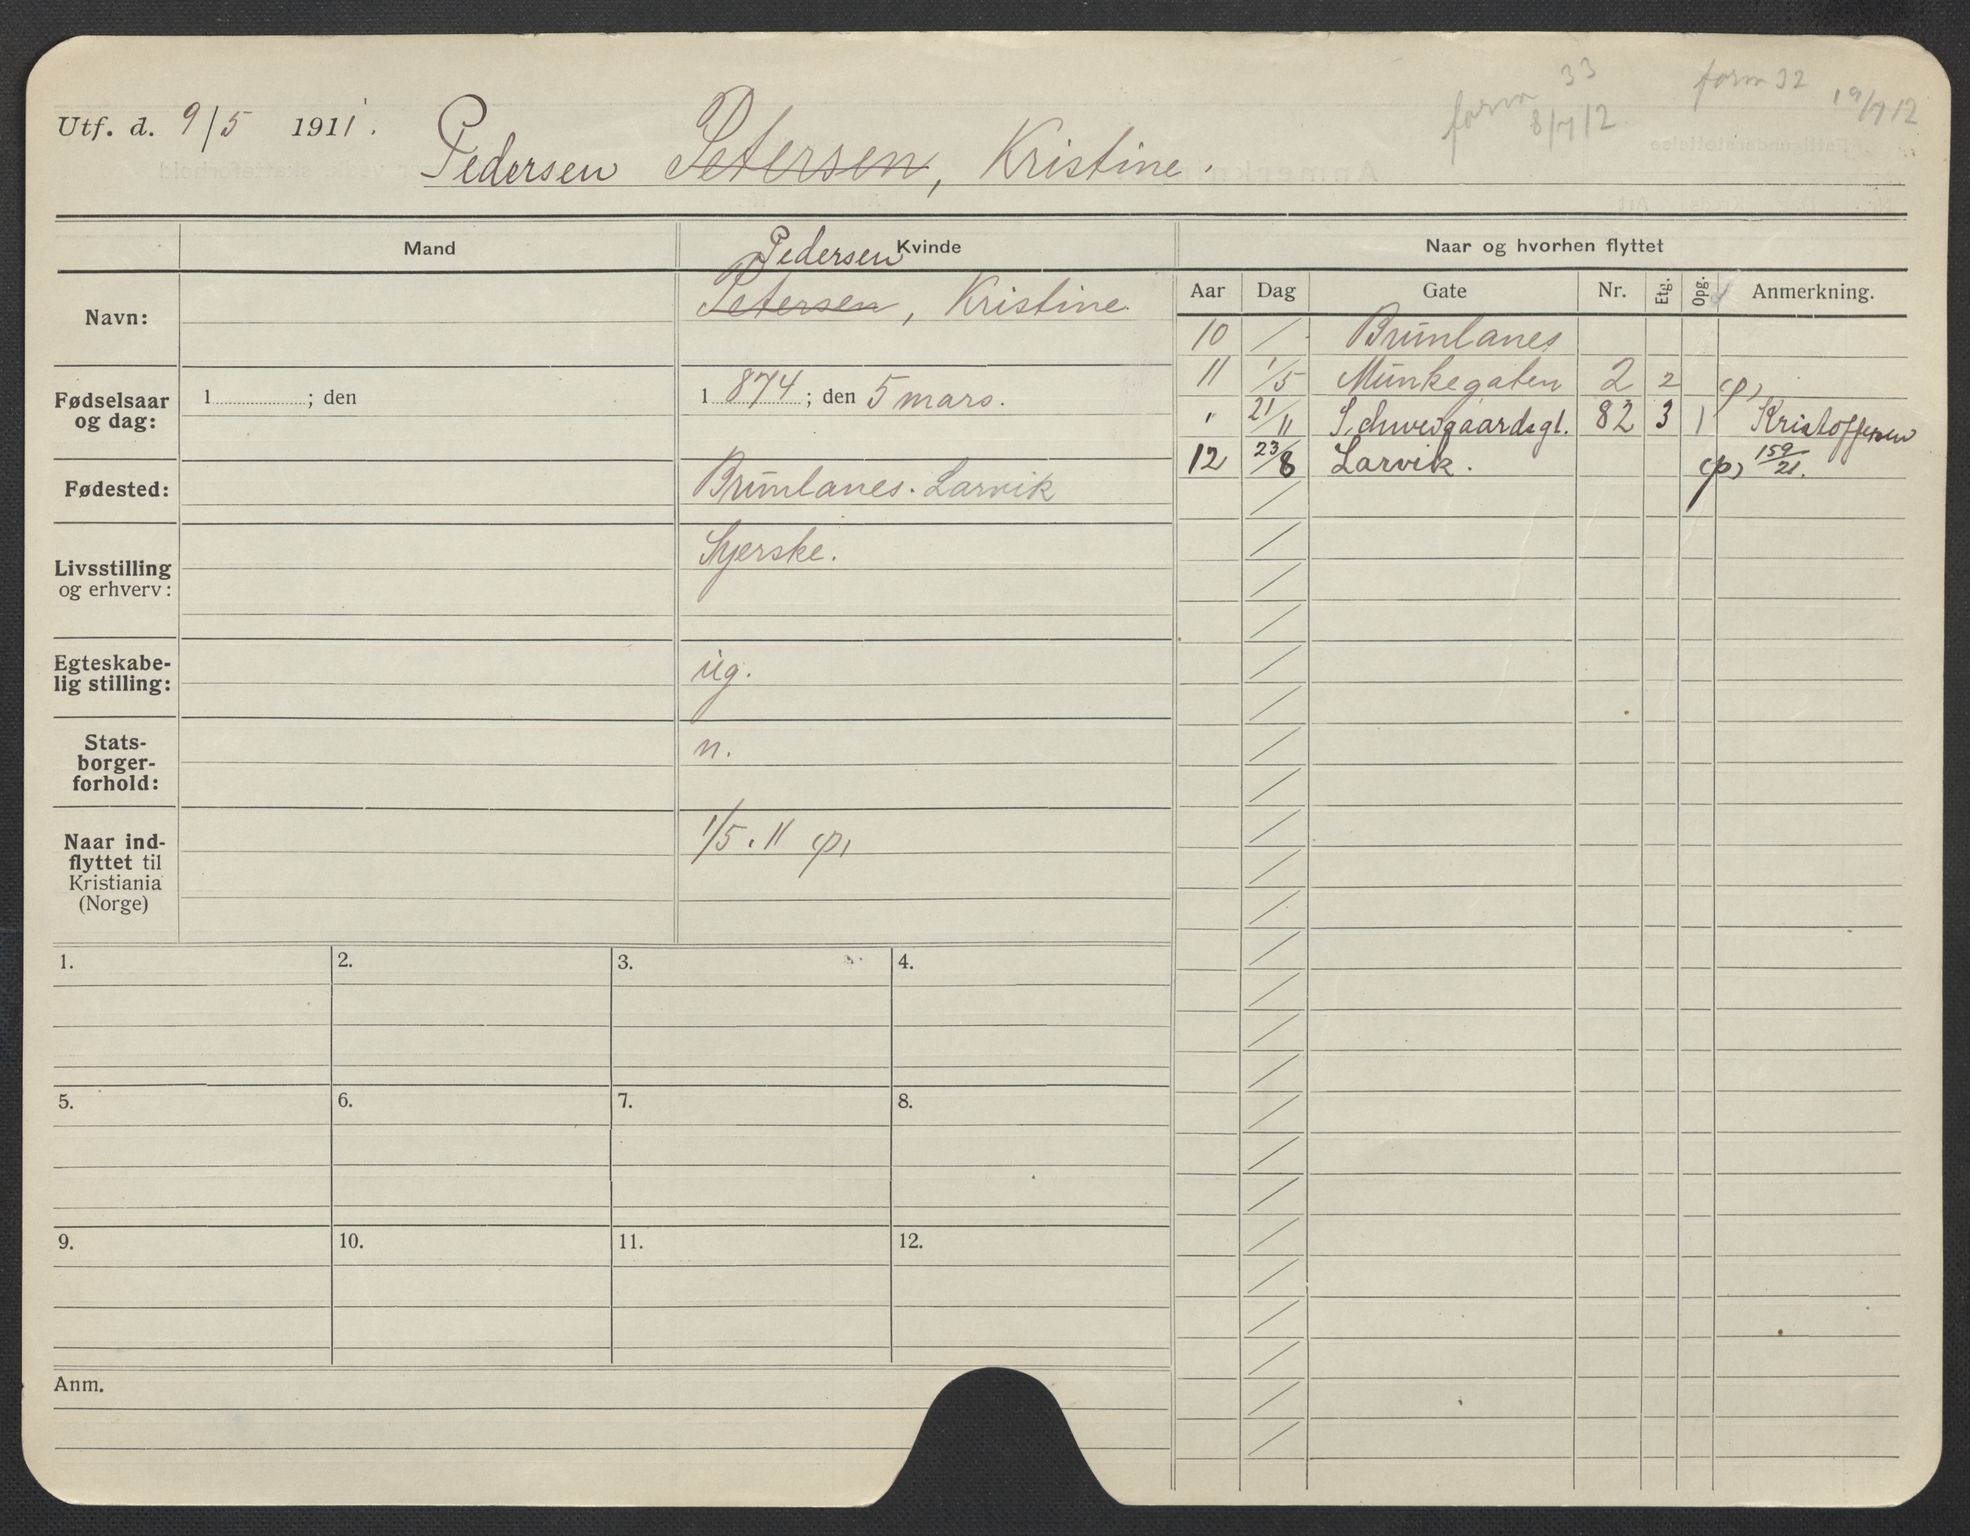 form 33
8/7 12
form 32
19/7 12
Utf. d. 9/5 1911. Pedersen Petersen, Kristine.
Mand
Pedersen Kvinde
Naar og hvorhen flyttet
Navn:
Petersen, Kristine.
Aar Dag Gate Nr. Etg. Opg. Anmerkning.
10 / Brunlanes
11 1/5 Munkegaten 2 2 (p)
" 21/11 Schweigaardsgt. 82 3 1 Kristoffersen
12 23/8 Larvik. (p) 159/21.
Fødselsaar
og dag:
1 ; den
1 874 ; den 5 mars.
Fødested:
Brunlanes. Larvik
Livsstilling
og erhverv:
Syerske.
Egteskabe-
lig stilling:
ug.
Stats-
borger-
forhold:
n.
Naar ind-
flyttet til
Kristiania
(Norge)
1/5. 11 (p)
1. 2. 3. 4.
5. 6. 7. 8.
9. 10. 11. 12.
Anm.